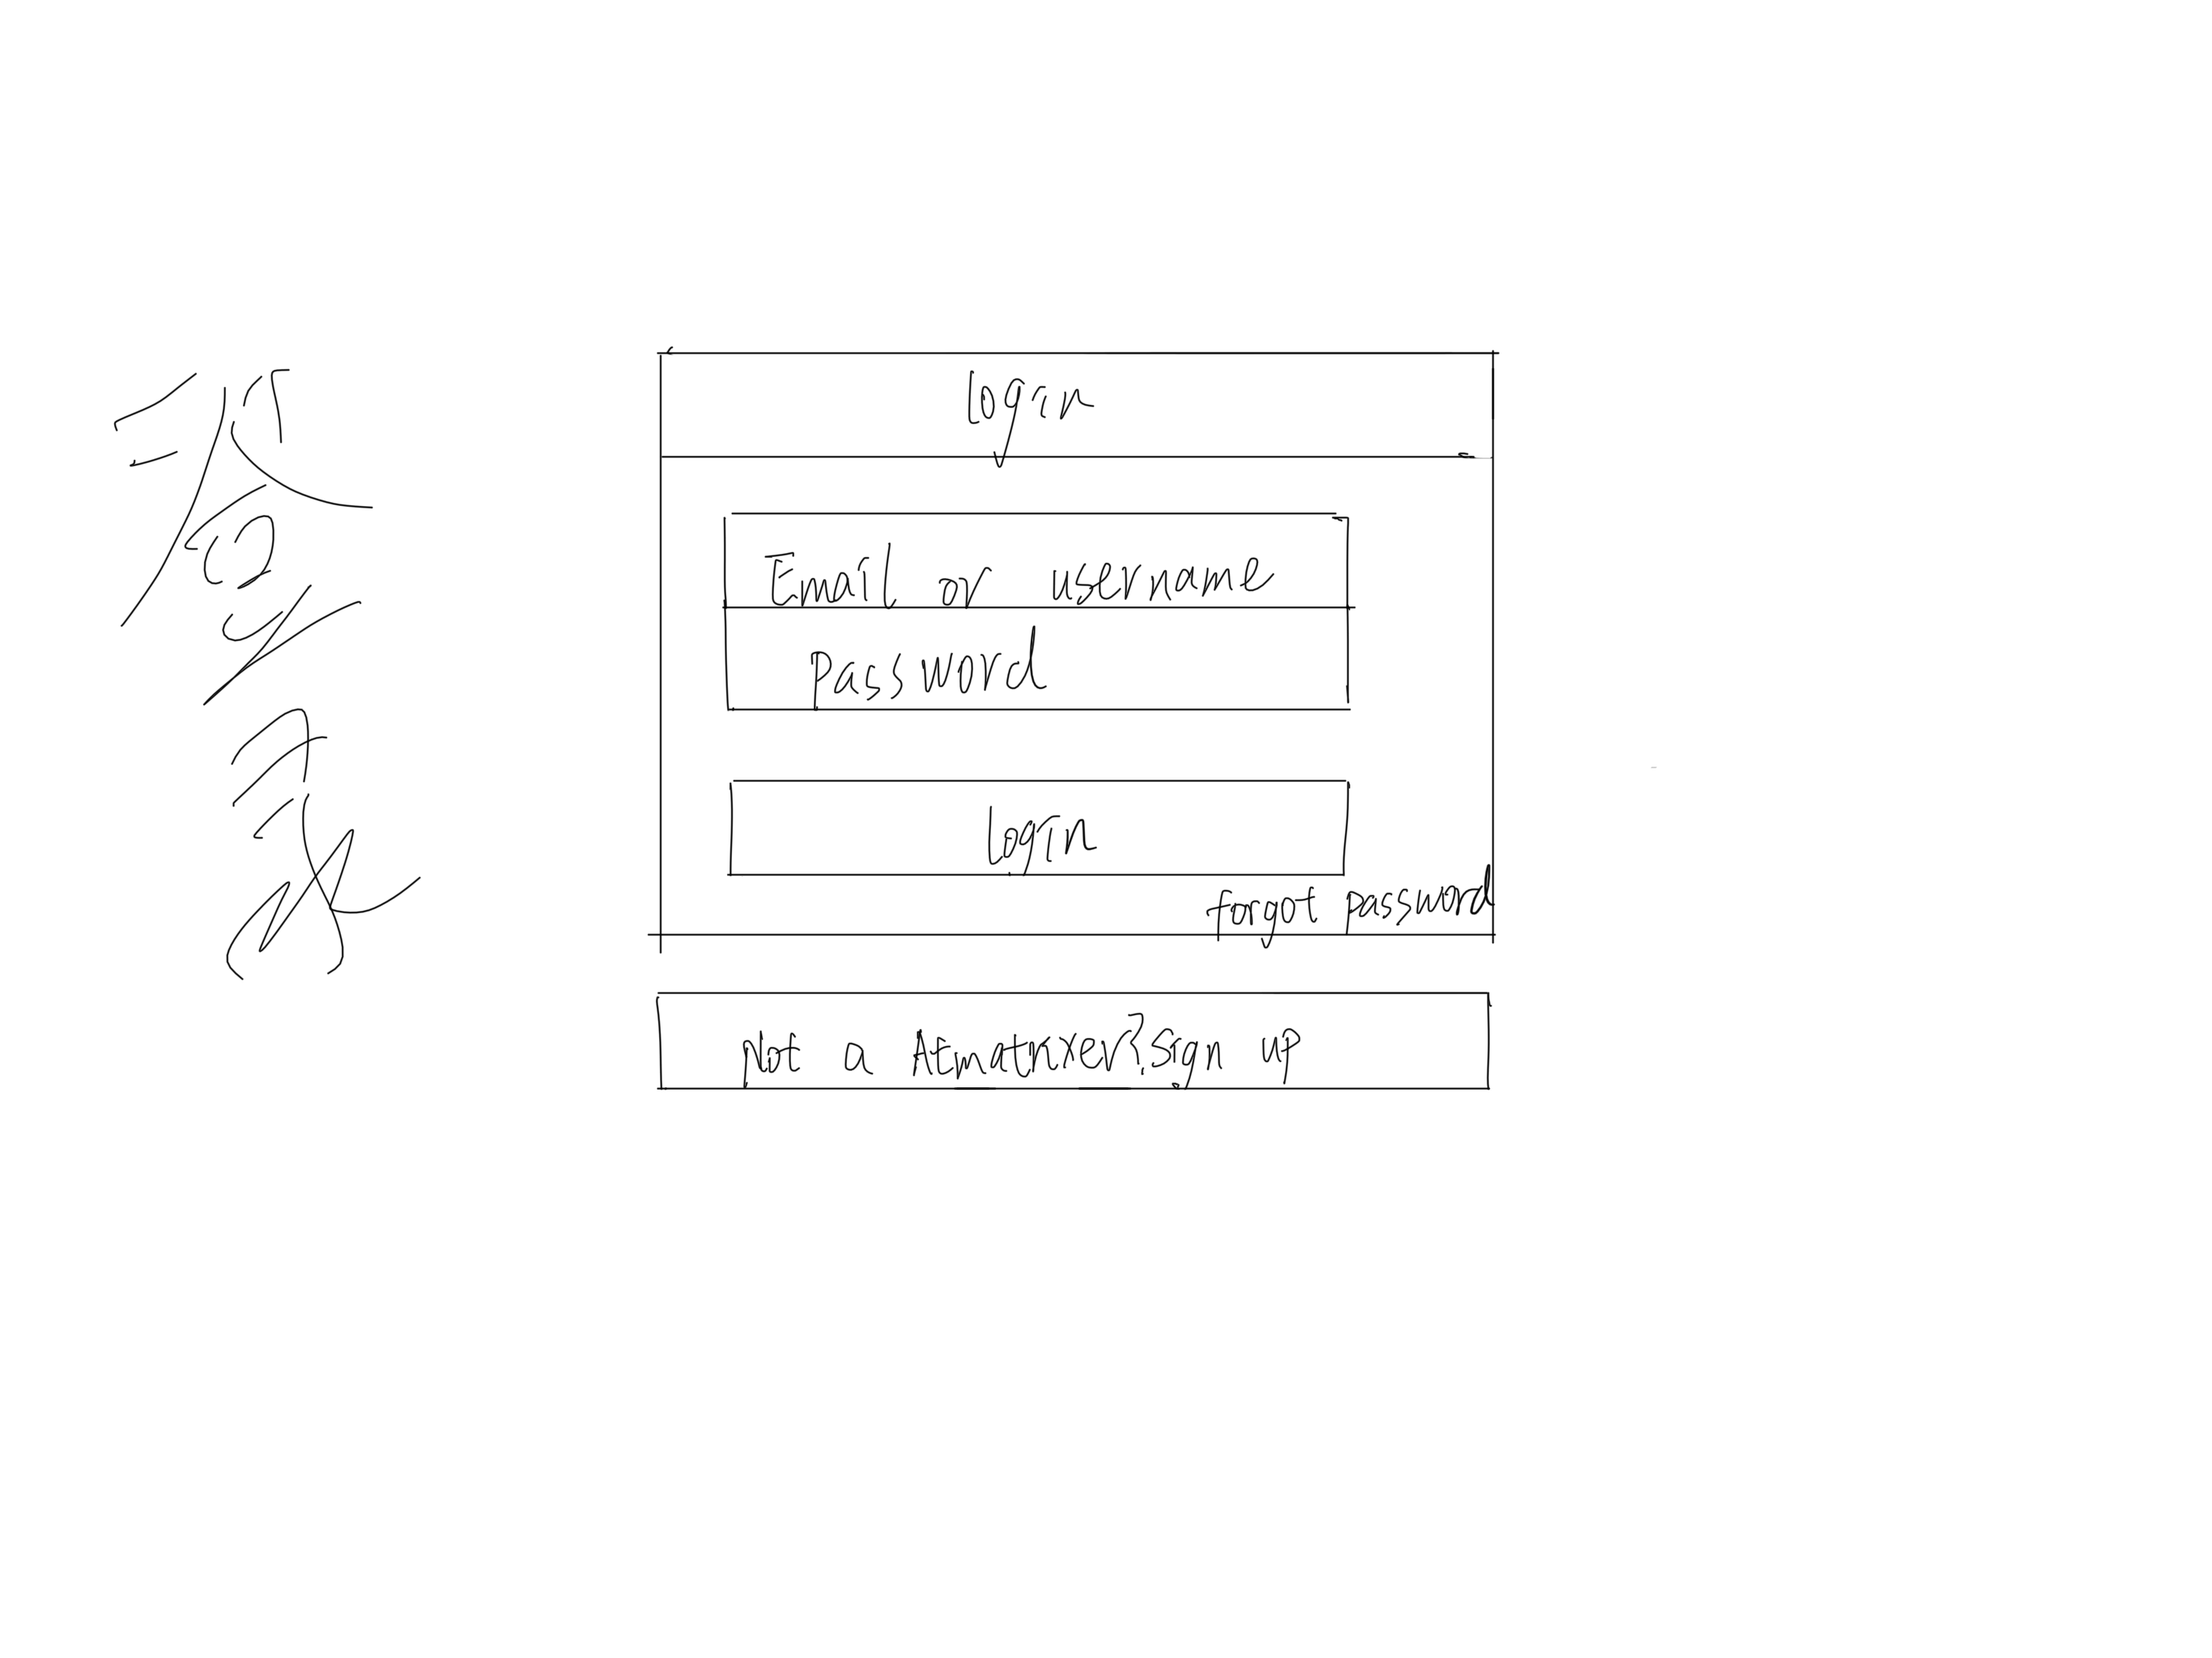 login
Email or username
Password
login
forgot password
Not a Atmatrixer? Sign up